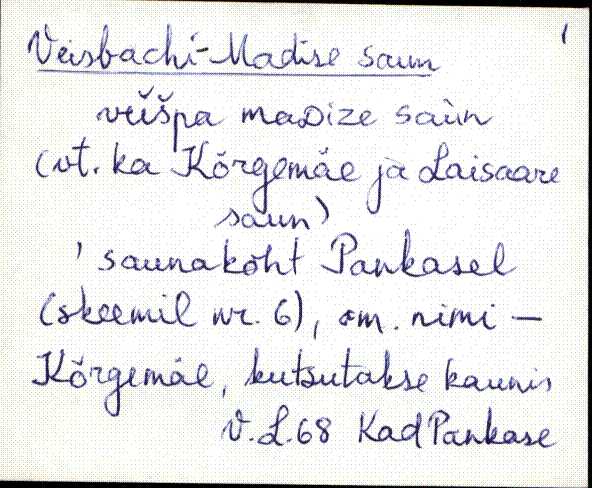 1
Veisbachi-Madise saun
veišpa maDize saùn
(vt. ka Kõrgemäe ja Laisaare
saun)
' saunakoht Pankasel
(skeemil nr. 6), om. nimi —
Kõrgemäe, kutsutakse kaunis
V.L.68 Kad Pankase